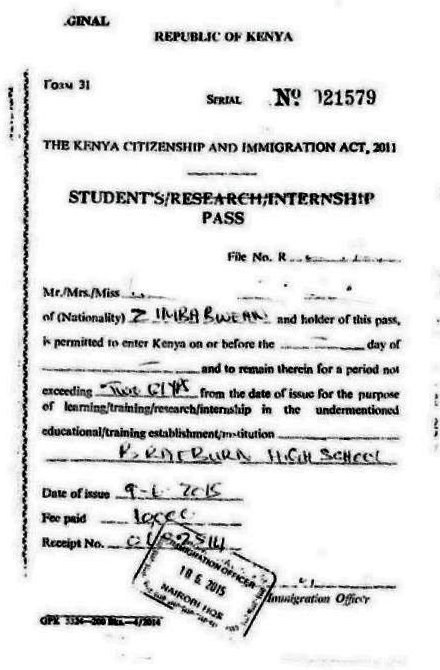 .GINAL
REPUBLIC OF KENYA
FORM 31
SERIAL No 021579
THE KENYA CITIZENSHIP AND IMMIGRATION ACT, 2011
STUDENT'S/RESEARCH/INTERNSHIP
PASS
File No. R
Mr./Mrs./Miss
of (Nationality) ZIMBABWEAN and holder of this pass,
is permitted to enter Kenya on or before the day of
and to remain therein for a period not
exceeding from the date of issue for the purpose
of learning/training/research/internship in the undermentioned
educational/training establishment/institution
HIGH SCHOOL
Date of issue 2015
Fee paid
Receipt No.
IMMIGRATION OFFICER
10 6 2015
NAIROBI HQS
Immigration Officer
GPK 3336—200 Bks.—4/2014